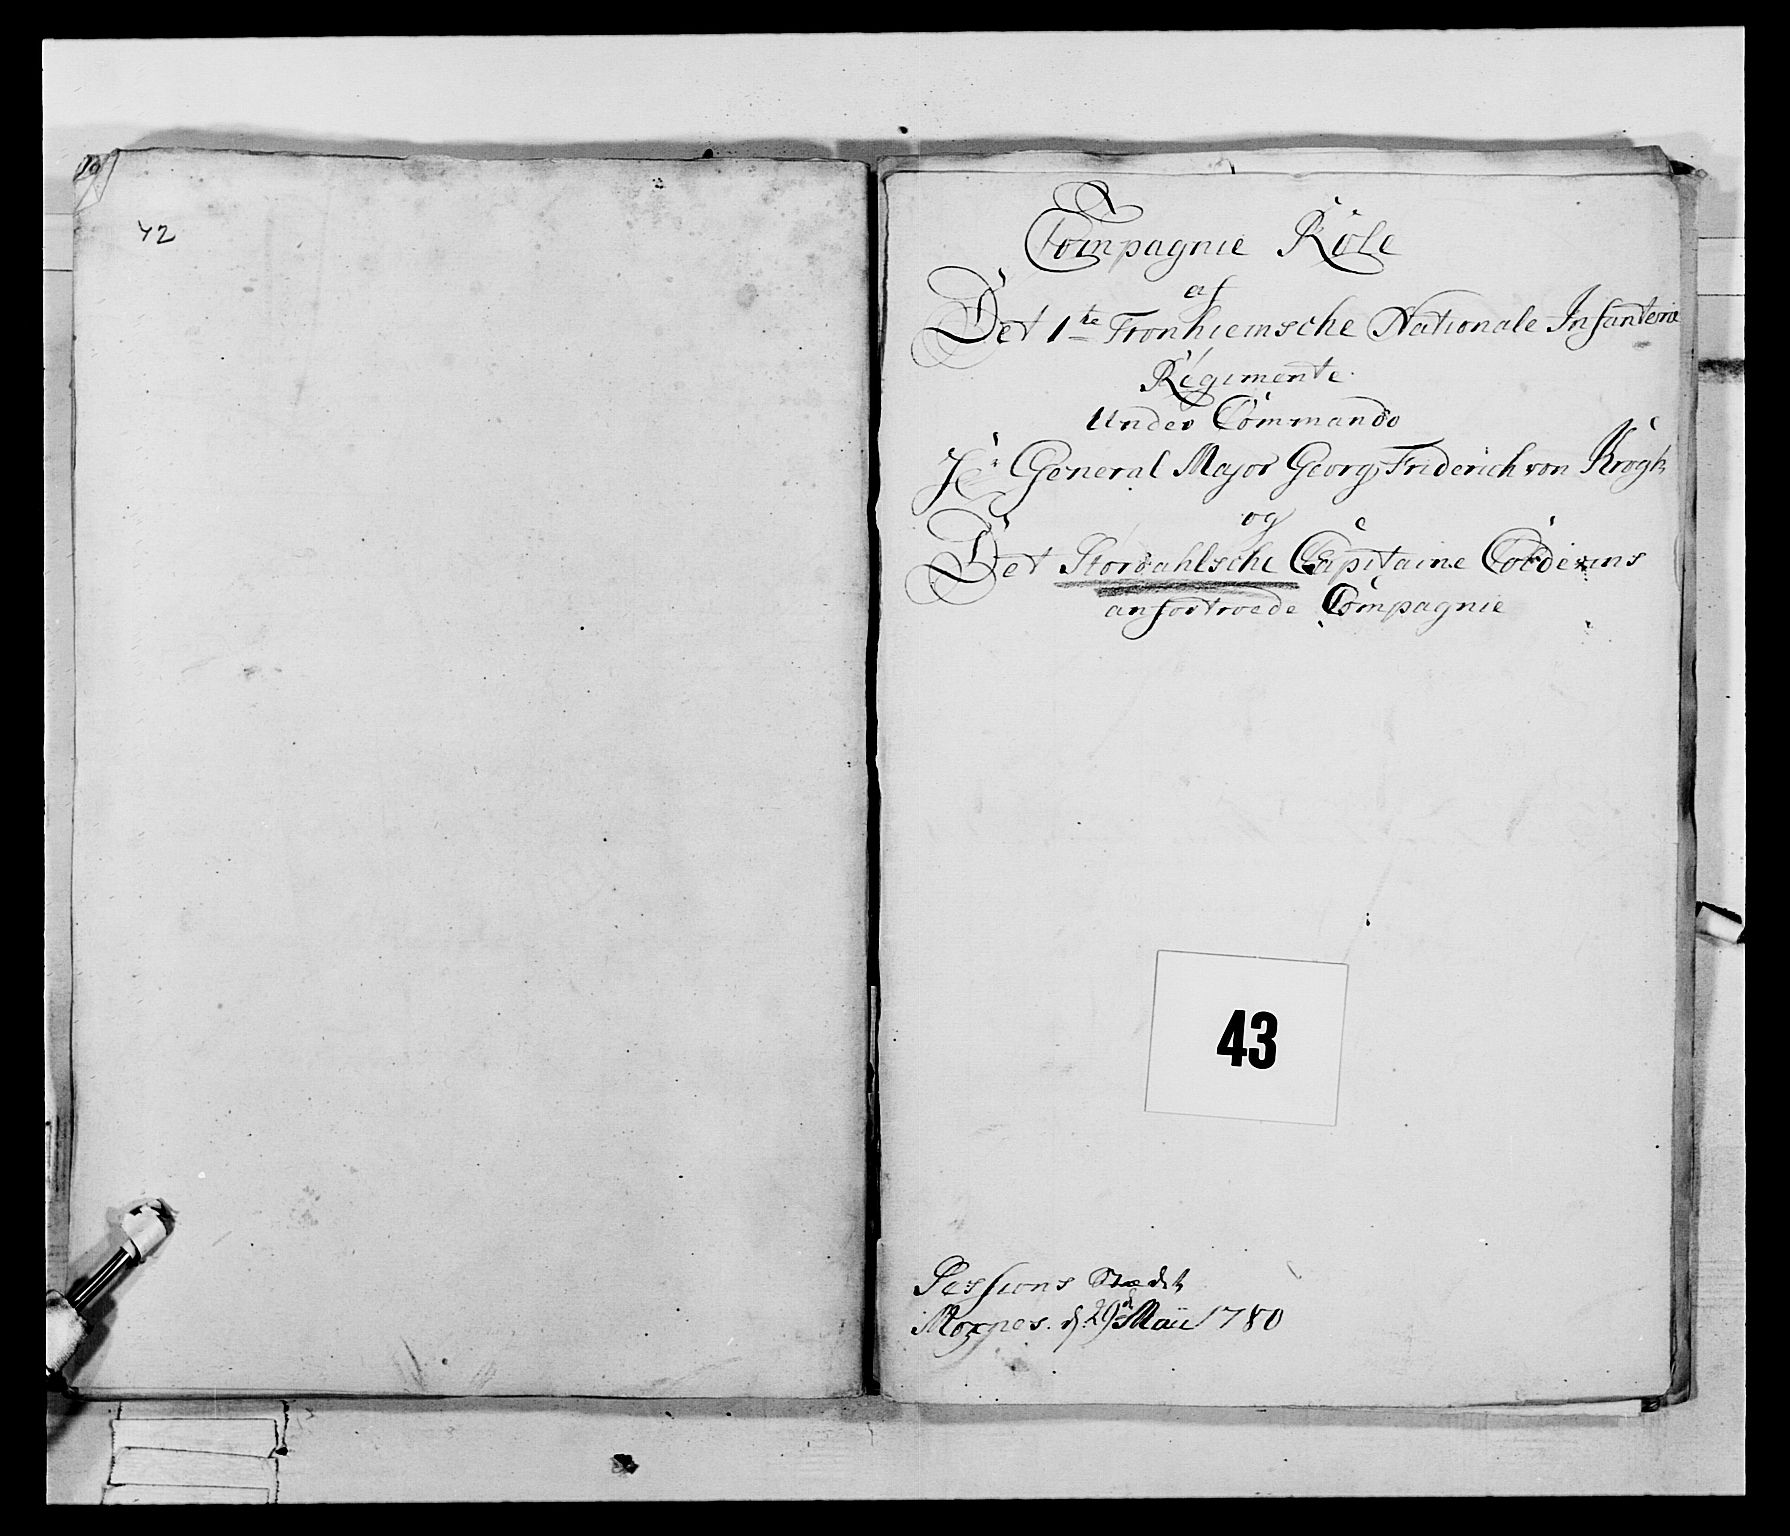 42
Compagnie Rôle
af
Det 1te Tronhiemsche Nationale Infanterie
Regimente
Under Commando
Hr General Major Georg Friderich von Krogh
og
Det Stördahlsche Capitaine Coldevins
anfortroede Compagnie
43
Sessions Stædet
d. 29d Maii 1780